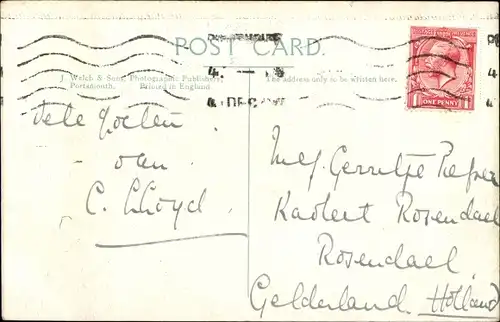 POST CARD.
J. Welch & Sons, Photographic Publishers,
Portsmouth. Printed in England
The address only to be written here.
4 DEC
ONE PENNY
Vele Groeten
van
C. Lloyd.
Mej. Gerretje
Kasteel Rosendael
Rosendael
Gelderland Holland